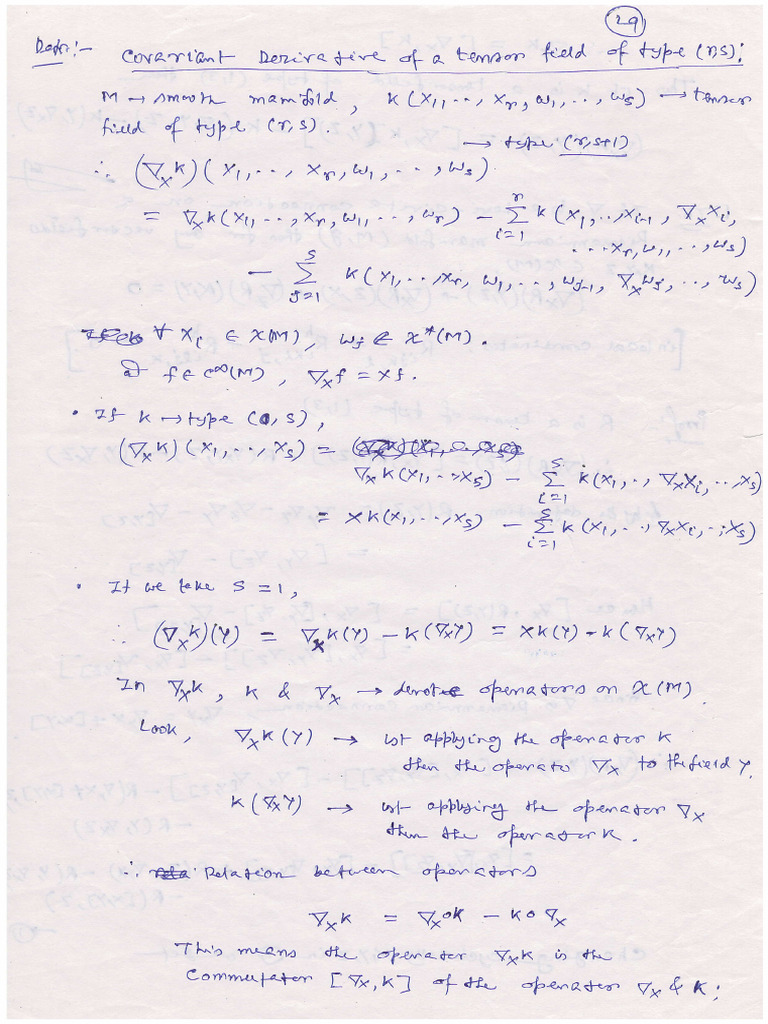 29
Defn:- Covariant Derivative of a tensor field of type (r,s):
M → smooth manifold, K(X₁,..., Xᵣ, ω₁,..., ωₛ) → tensor
field of type (r,s).
→ type (r,s+1)
∴ (∇ₓK)(X₁,..., Xᵣ, ω₁,..., ωₛ)
= ∇ₓK(X₁,...,Xᵣ, ω₁,..., ωᵣ) - Σᵢ₌₁ʳ K(X₁,..,Xᵢ₋₁, ∇ₓXᵢ,
...Xᵣ, ω₁,..., ωₛ)
- Σⱼ₌₁ˢ K(X₁,...,Xᵣ, ω₁,..., ωⱼ₋₁, ∇ₓωⱼ, .., ωₛ)
∀ Xᵢ ∈ X(M), ωⱼ ∈ X*(M).
f ∈ C^∞(M), ∇ₓf = Xf.
• If K → type (0,s),
(∇ₓK)(X₁,...,Xₛ) =
∇ₓK(X₁,..,Xₛ) - Σᵢ₌₁ˢ K(X₁,.., ∇ₓXᵢ,..,Xₛ)
= XK(X₁,...,Xₛ) - Σᵢ₌₁ˢ K(X₁,.., ∇ₓXᵢ,..,Xₛ)
• If we take s = 1,
∴ (∇ₓK)(Y) = ∇ₓK(Y) - K(∇ₓY) = XK(Y) - K(∇ₓY)
In ∇ₓK, K & ∇ₓ → denote operators on X(M).
Look, ∇ₓK(Y) → 1st applying the operator K
then the operato ∇ₓ to the field Y.
K(∇ₓY) → 1st applying the operator ∇ₓ
then the operator K.
∴ Relation between operators
∇ₓK = ∇ₓoK - Ko∇ₓ
This means the operator ∇ₓK is the
Commutator [∇ₓ,K] of the operator ∇ₓ & K;